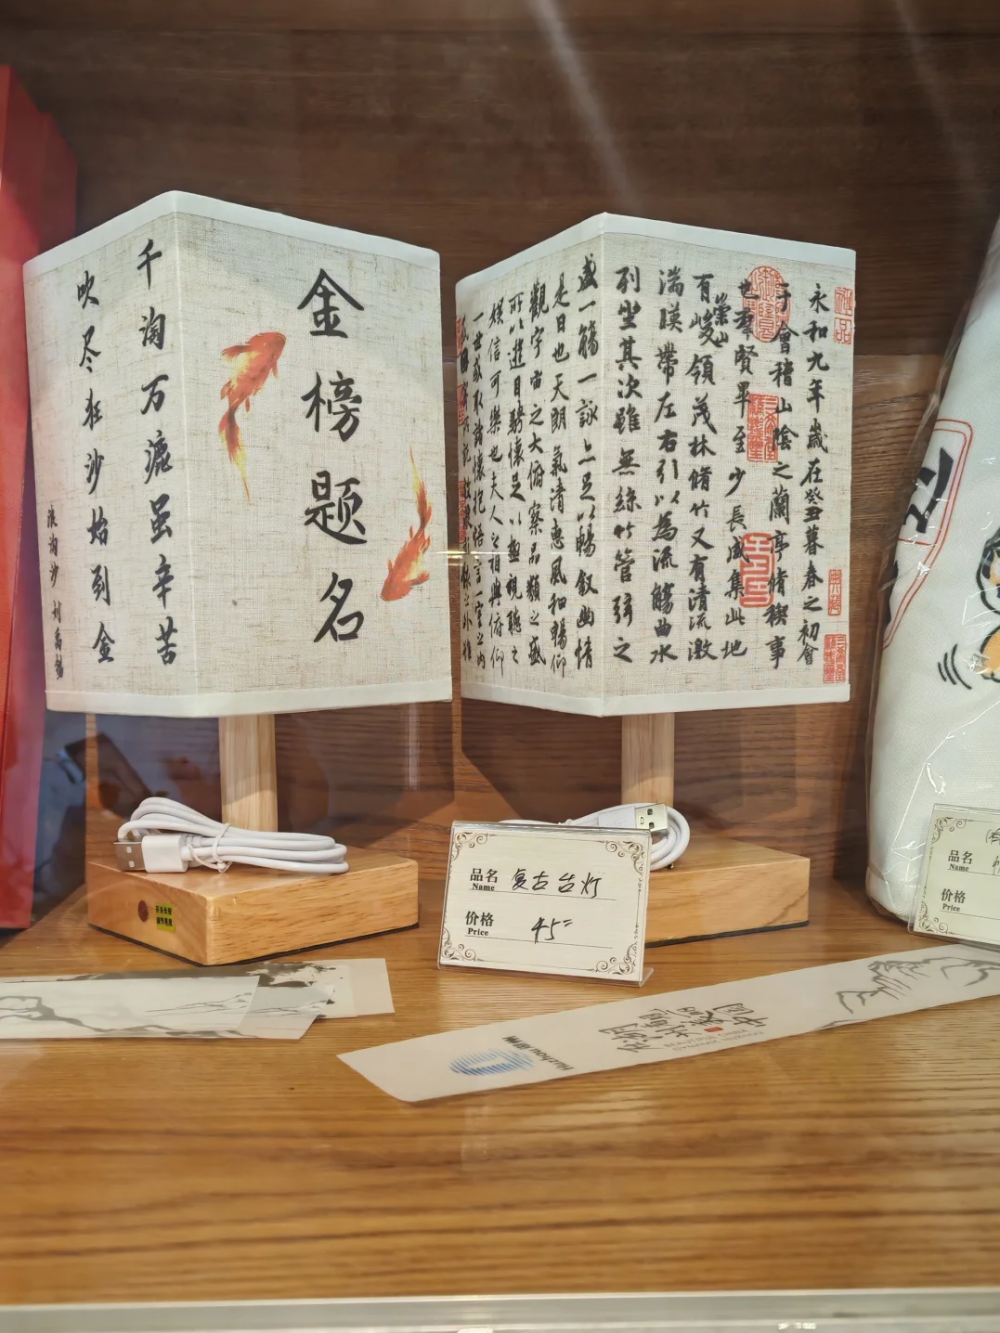 金榜题名
千淘万漉虽辛苦
吹尽狂沙始到金
浪淘沙 刘禹锡
永和九年歲在癸丑暮春之初會
于會稽山陰之蘭亭脩稧事
也群賢畢至少長咸集此地
有崇山峻領茂林脩竹又有清流激
湍暎帶左右引以為流觴曲水
列坐其次雖無絲竹管弦之
盛一觴一詠亦足以暢敘幽情
是日也天朗氣清惠風和暢仰
觀宇宙之大俯察品類之盛
所以遊目騁懷足以極視聽之
娛信可樂也夫人之相與俯仰
一世或取諸懷抱悟言一室之內
品名
Name
复古台灯
价格
Price
45=
品名
Name
价格
Price
Huzhou